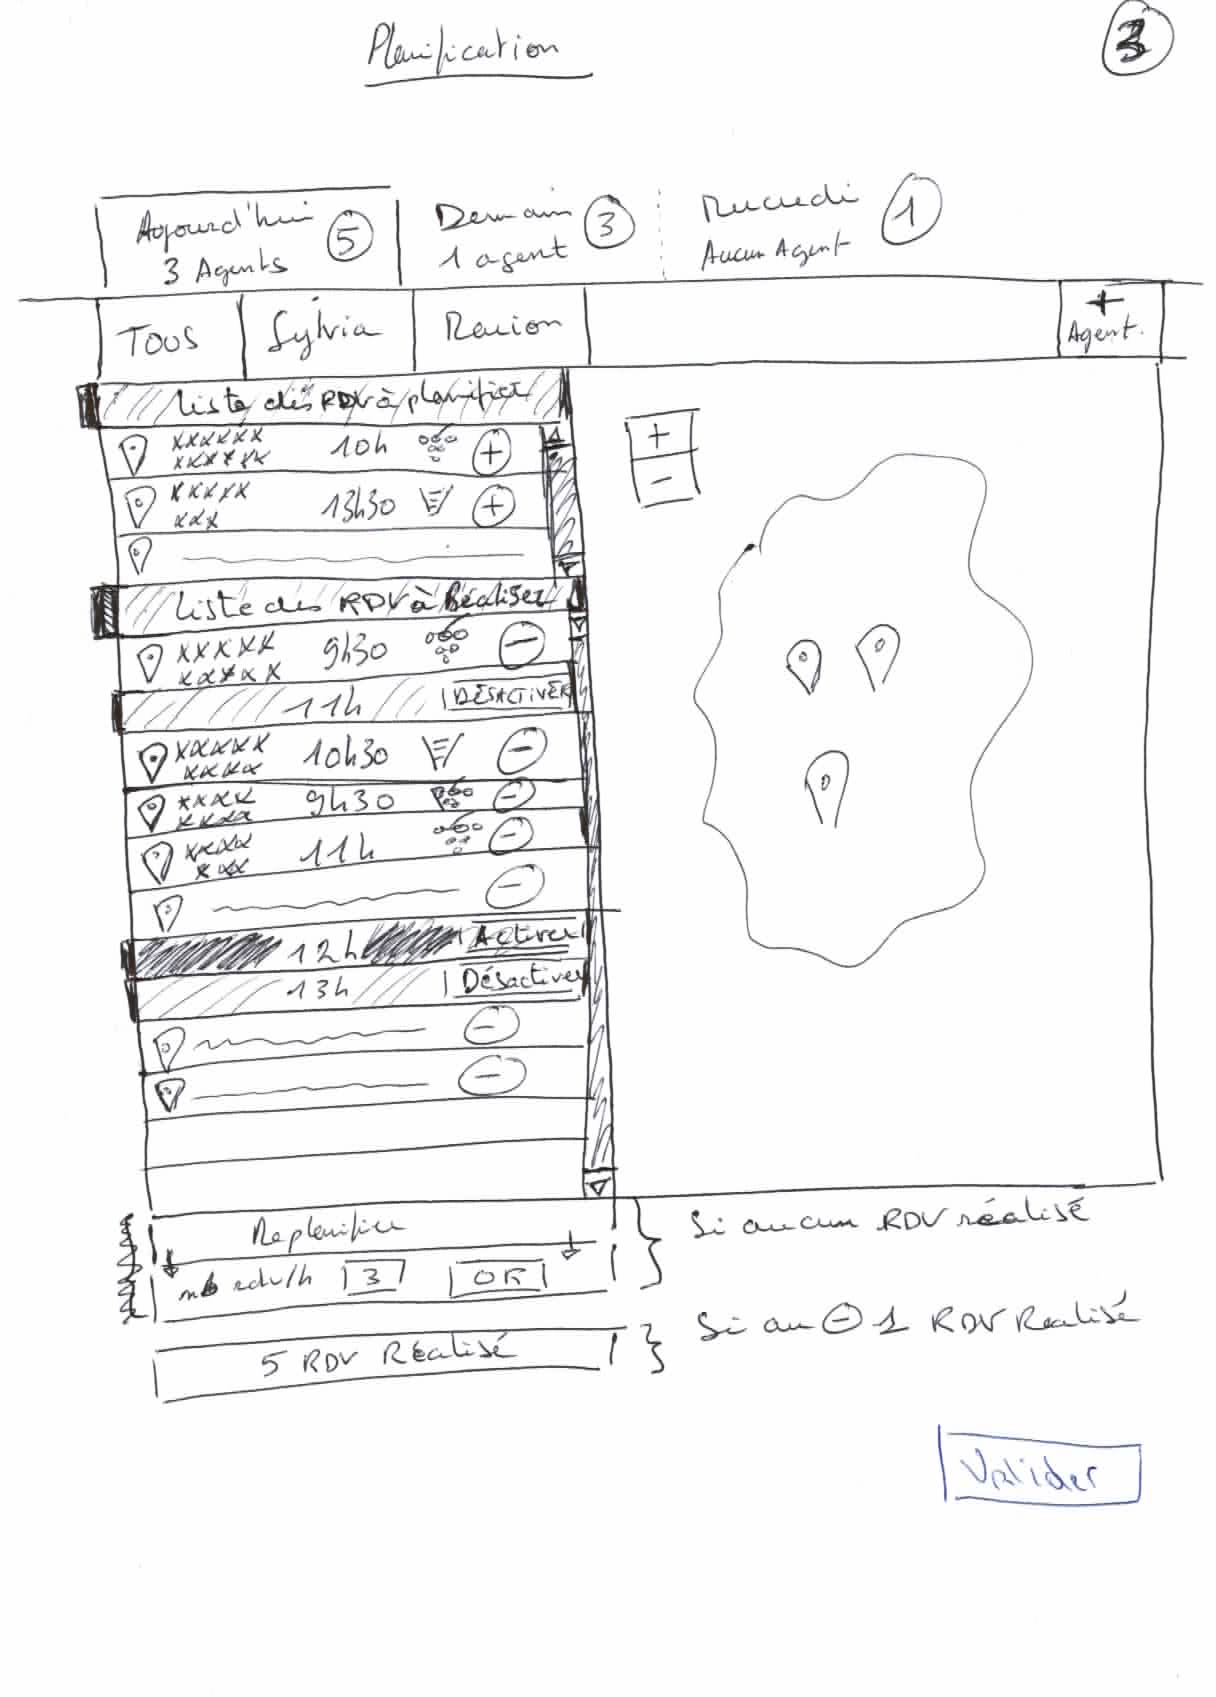 Planification
3
Aujourd'hui 5
3 Agents
Demain 3
1 agent
Mercredi 1
Aucun Agent
TOUS Sylvia Marion
+
Agent.
Liste des RDV à planifier
xxxxxx 10h +
xxxxxx
xxxxx 13h30 +
xxx
Liste des RDV à Réaliser
xxxxx 9h30 -
xxxxx
11h DÉSACTIVER
xxxxx 10h30 -
xxxx
xxxx 9h30 -
xxxx
xxxx 11h -
xxx
-
12h Activer
13h Désactiver
-
-
+
-
Replanifier
nb rdv/h 3 OK
Si aucun RDV réalisé
5 RDV Réalisé
Si au - 1 RDV Realisé
Valider